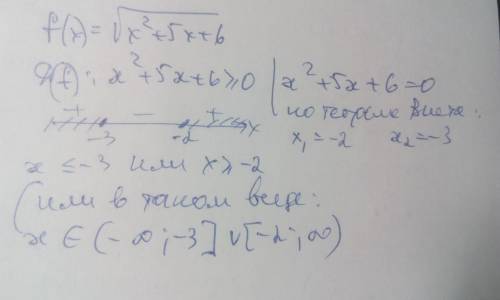 f(x) = √x²+5x+6
D(f): x²+5x+6≥0 | x²+5x+6=0
по теореме Виета:
+ − +
-3 -2 x
x₁=-2 x₂=-3
x ≤ -3 или x ≥ -2
(или в таком виде:
x ∈ (-∞; -3] ∪ [-2; ∞)